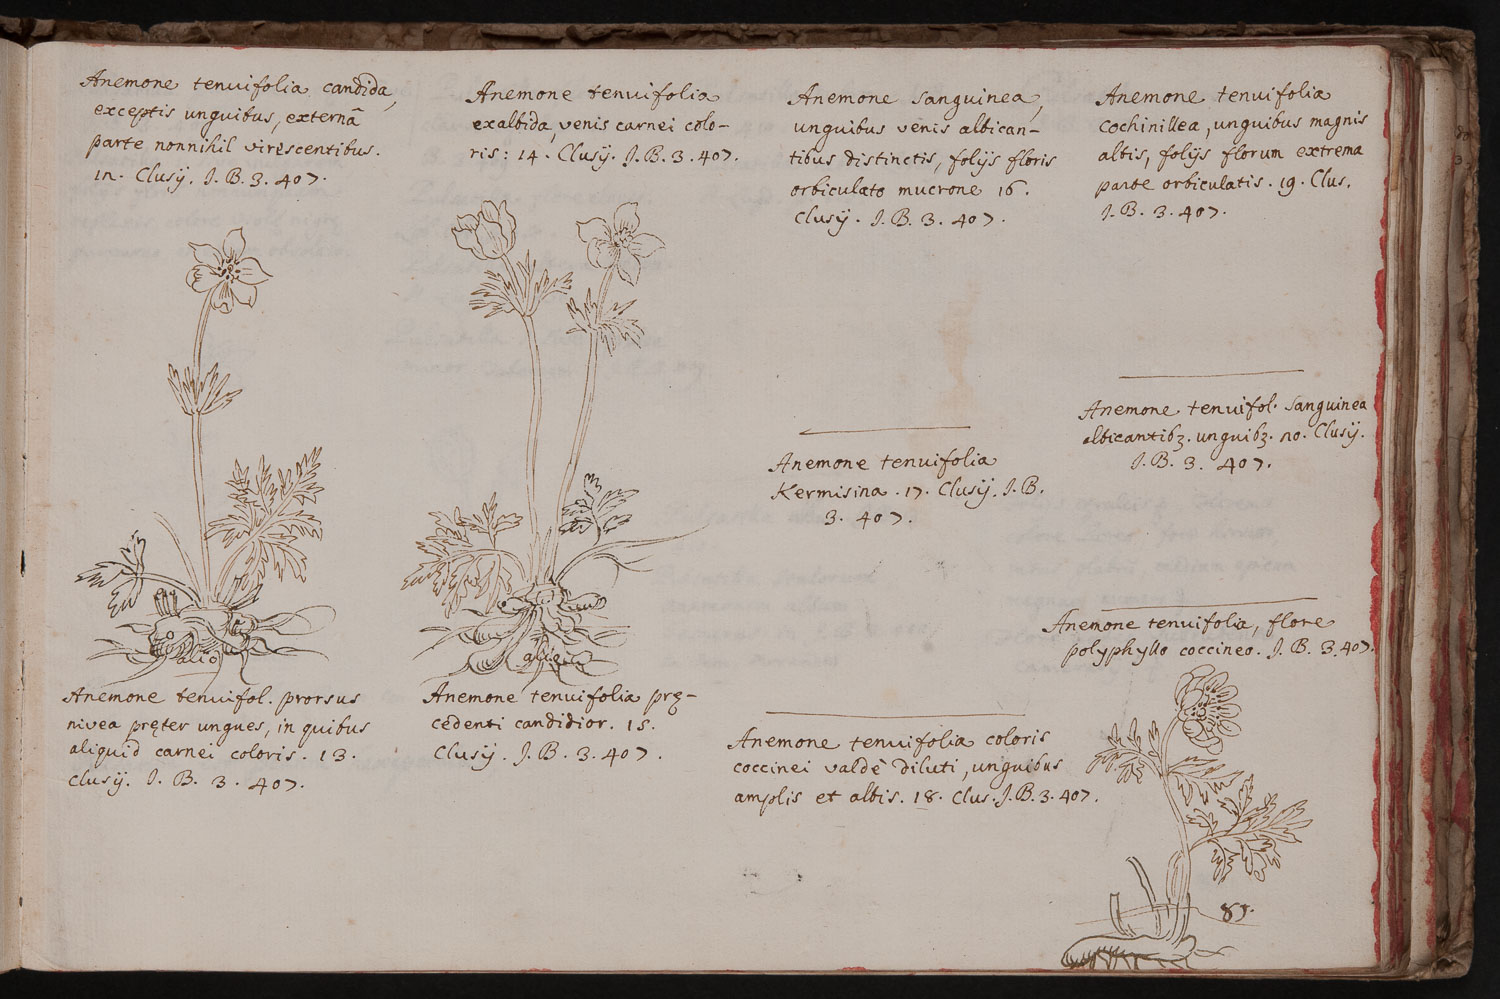 Anemone tenuifolia candida,
exceptis unguibus, externâ
parte nonnihil virescentibus.
12. Clusij. J. B. 3. 407.
Anemone tenuifol. prorsus
nivea pręter ungues, in quibus
aliquid carnei coloris. 13.
Clusij. J. B. 3. 407.
Anemone tenuifolia
exalbida, venis carnei colo-
ris: 14. Clusij. J. B. 3. 407.
Anemone tenuifolia prę-
cedenti candidior. 15.
Clusij. J. B. 3. 407.
Anemone sanguinea,
unguibus venis albican-
tibus distinctis, folijs floris
orbiculato mucrone 16.
Clusij. J. B. 3. 407.
Anemone tenuifolia
Kermisina. 17. Clusij. J. B.
3. 407.
Anemone tenuifolia coloris
coccinei valdè diluti, unguibus
amplis et albis. 18. Clus. J. B. 3. 407.
Anemone tenuifolia
cochinillea, unguibus magnis
albis, folijs florum extrema
parte orbiculatis. 19. Clus.
J. B. 3. 407.
Anemone tenuifol. sanguinea
albicantibꝫ. unguibꝫ. 20. Clusij.
J. B. 3. 407.
Anemone tenuifolia, flore
polyphyllo coccineo. J. B. 3. 407.